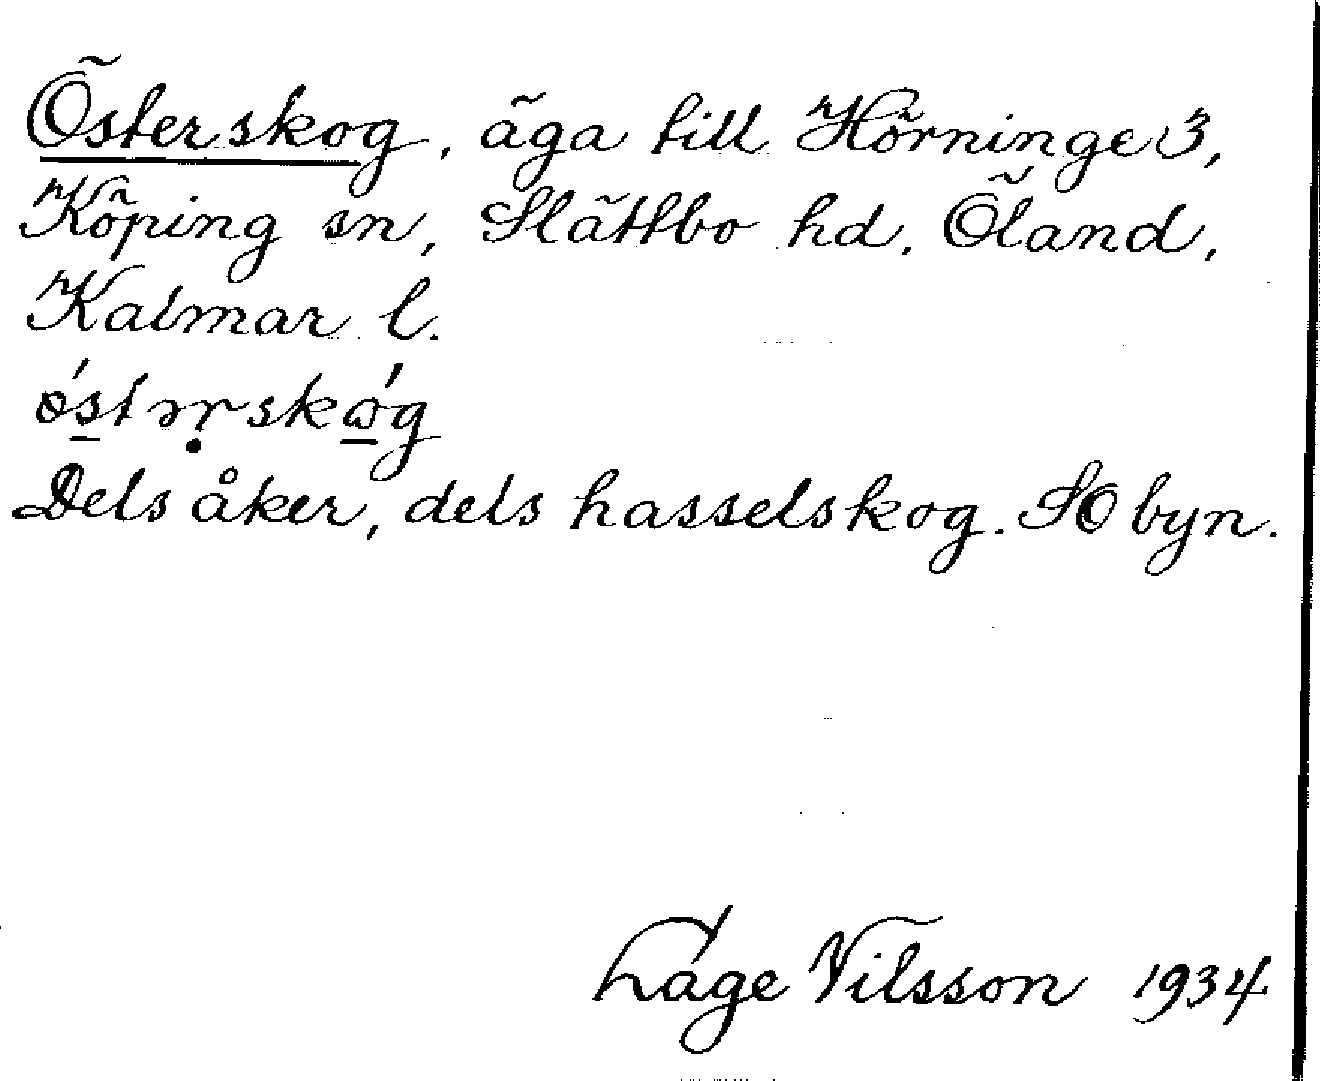 Österskog, äga till Hörninge 3,
Köping sn, Slättbo hd. Öland,
Kalmar l.
Dels åker, dels hasselskog. SO byn.
Nilsson 1934